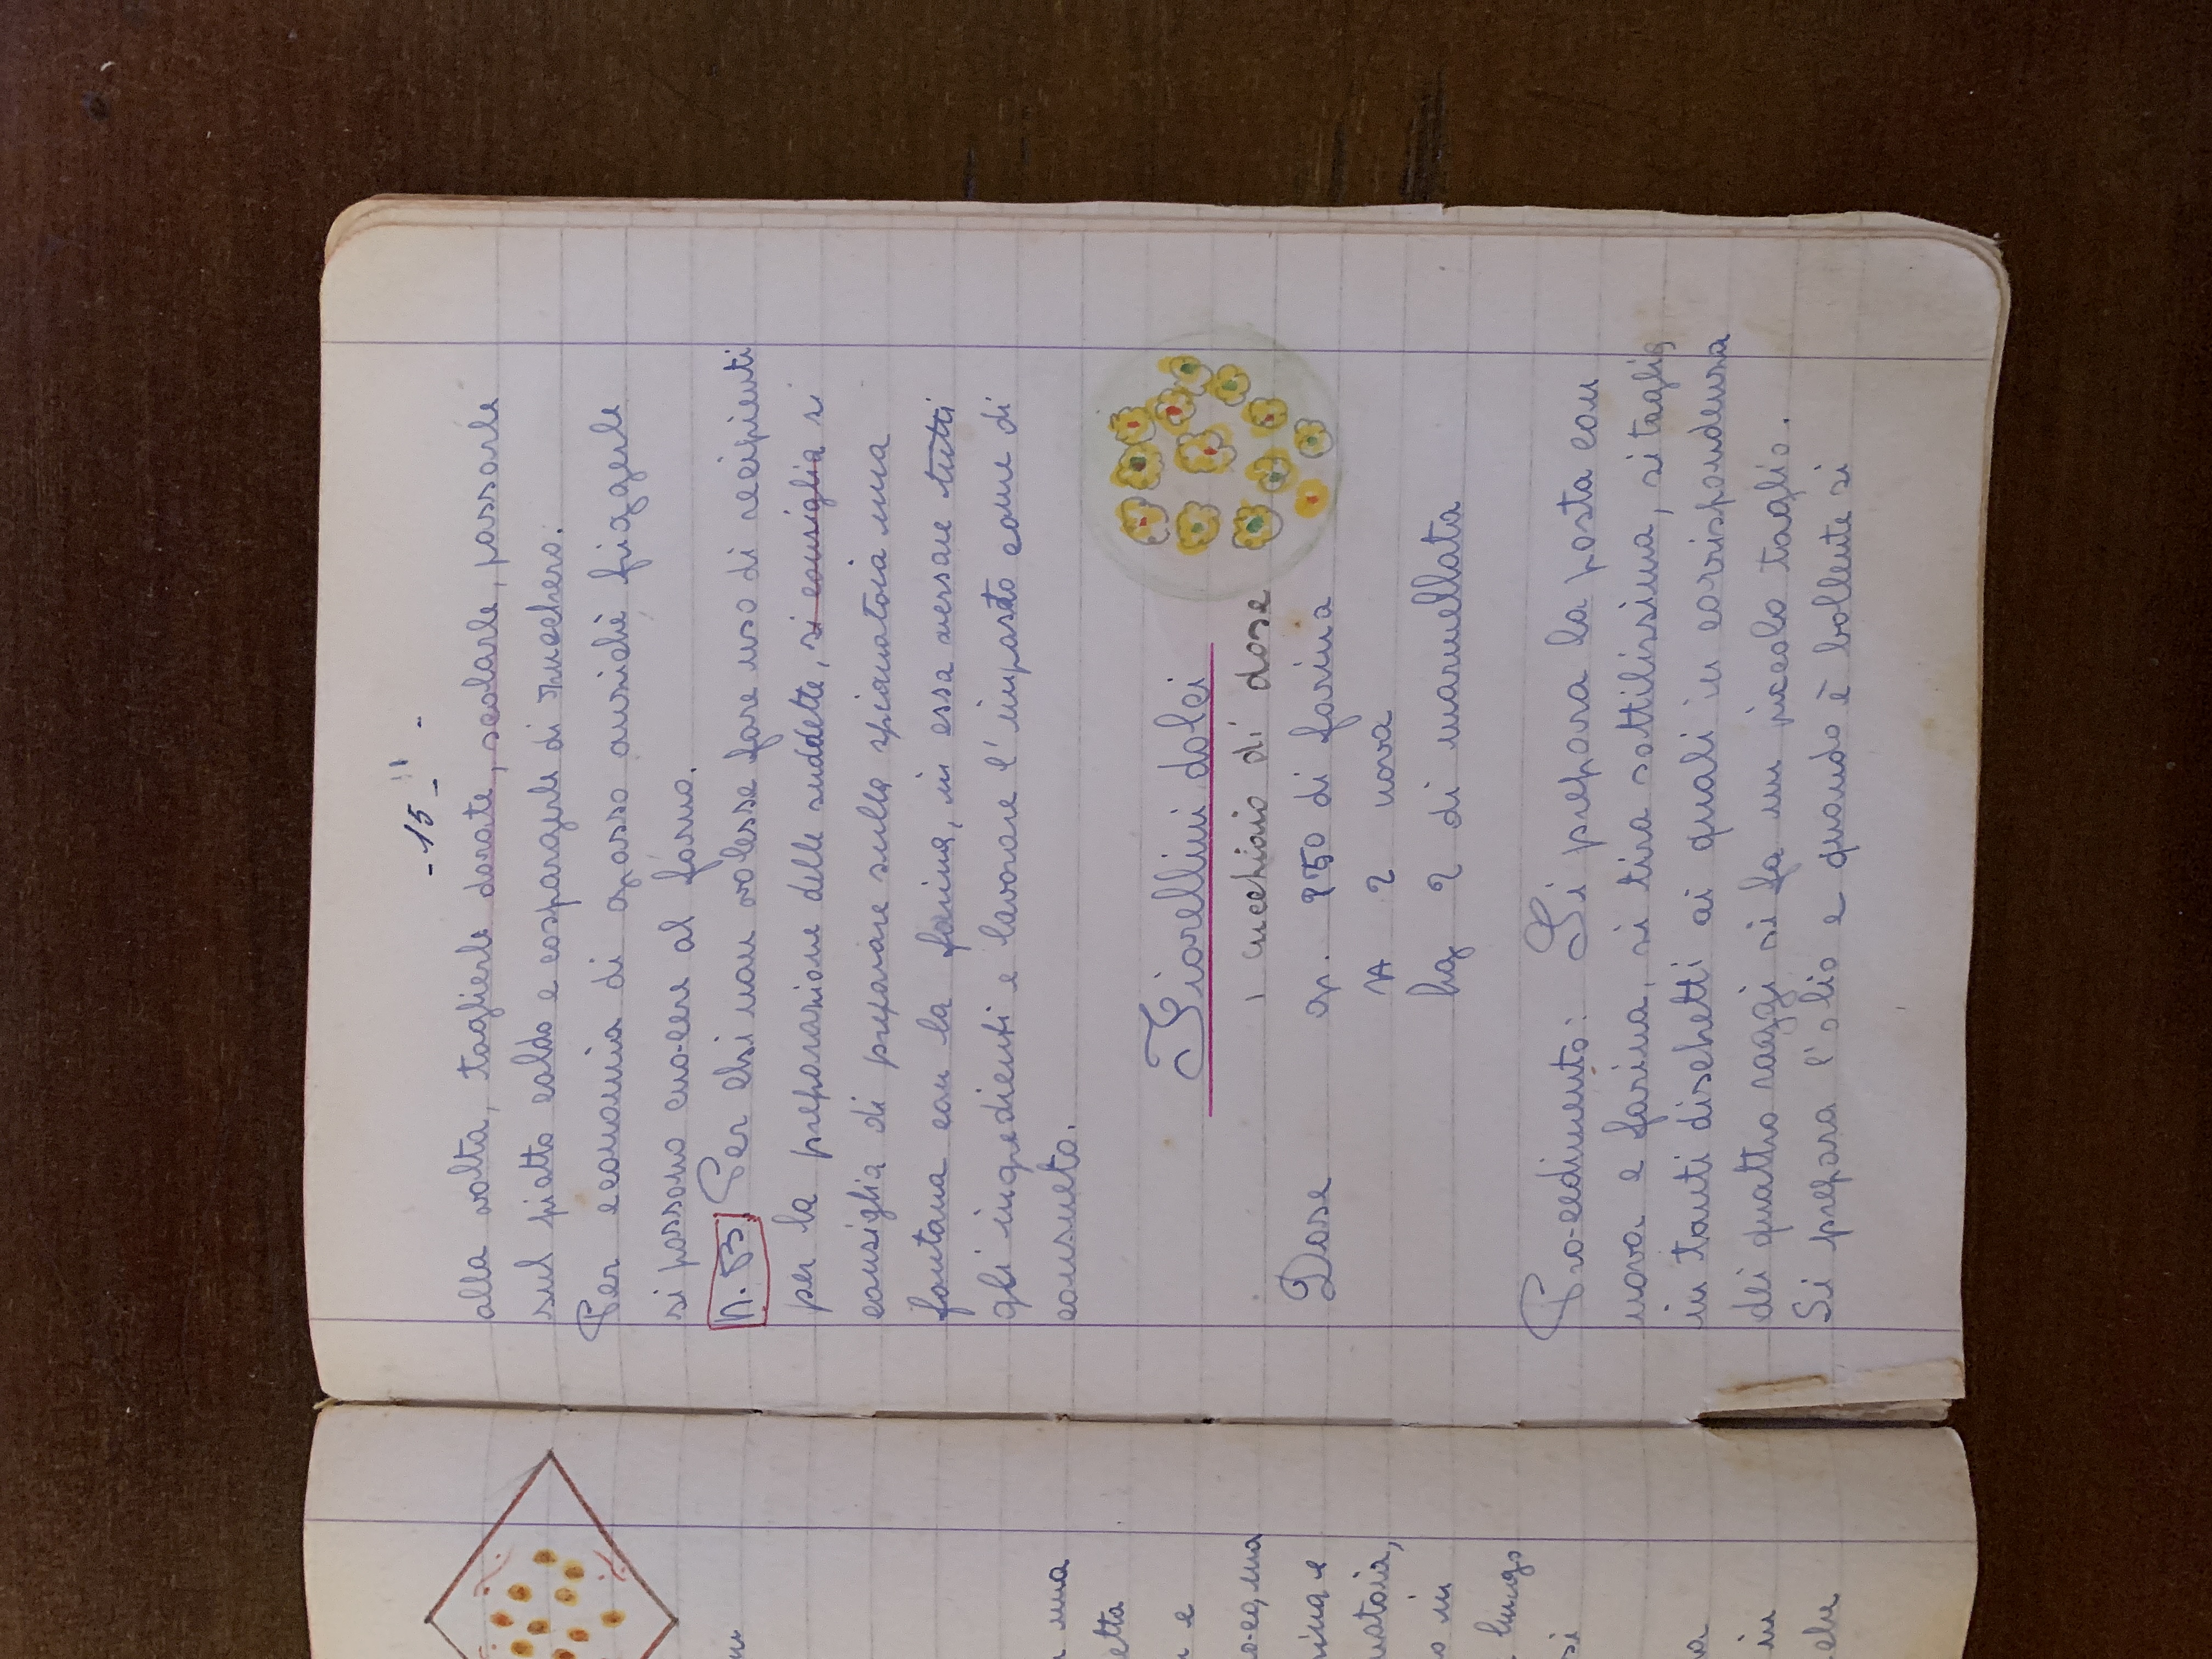 um
una
etta
e
una
e
in
lungo
si
in
che
- 15 -
alla volta, toglierle dorate, scolarle, passarle
sul piatto caldo e cospargerle di zucchero.
Per economia di grasso anzichè friggerle
si possono cuo-cere al forno.
N. B. Per chi non volesse fare uso di recipienti
per la preparazione delle suddette, si consiglia si
consiglia di preparare sulla spianatoia una
fontana con la farina, in essa versare tutti
gli ingredienti e lavorare l'impasto come di
consueto.
Fiorellini dolci
1 cucchiaio di dose
Dose gr. 250 di farina
N 2 uova
hg 2 di marmellata
Pro-cedimento: Si prepara la pasta con
uova e farina, si tira sottilissima, si taglia
in tanti dischetti ai quali in corrispondenza
dei quattro raggi si fa un piccolo taglio.
Si prepara l'olio e quando è bollente si